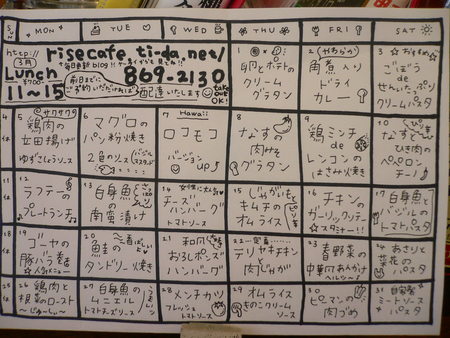 SUN MON TUE WED THU FRI SAT
http://risecafe.ti-da.net/
3月
Lunch
¥700
11~15
869-2130
前日までに
ご予約いただければ
配達いたします
take out OK!
1
卵とポテトの
クリーム
グラタン
2
(やわらか)
角煮入り
ドライ
カレー
3
☆おすすめ☆
ごぼう
de
クリームパスタ
4
休
5
@サクサク
鶏肉の
竜田揚げ
ゆずこしょうソース
6
マグロの
パン粉焼き
2色のソース
7
Hawaii
ロコモコ
バージョン
up♪
8
なすの
肉みそ
グラタン
9
鶏ミンチ
de
レンコンの
はさみ焼き
10
なすと
ひき肉の
ペペロン
チーノ
11
休
12
ラフテーの
プレートランチ
13
白身魚
の
南蛮漬け
14
女性に大人気
チーズ
ハンバーグ
トマトソース
15
じゃがいもと
キムチの
オムライス
16
チキンの
ガーリックソテー
☆スタミナ!!
17
白身魚と
バジルの
トマトパスタ
18
休
19
ゴーヤの
豚バラ巻き
☆人気メニュー
20
鮭の
タンドリー焼き
21
和風
おろしポンズ
ハンバーグ
22
テリヤキチキン
と
肉じゃが
23
春野菜の
中華風あんかけ
ヘルシー♪
24
あさりと
菜花の
パスタ
25
休
26
鶏肉と
根菜のロースト
~じゅーしぃ~
27
白身魚の
ムニエル
トマトチーズソース
28
メンチカツ
フレッシュ
トマトソース
29
オムライス
きのこクリーム
ソース
30
ピーマンの
肉づめ
31
自家製
ミートソース
パスタ